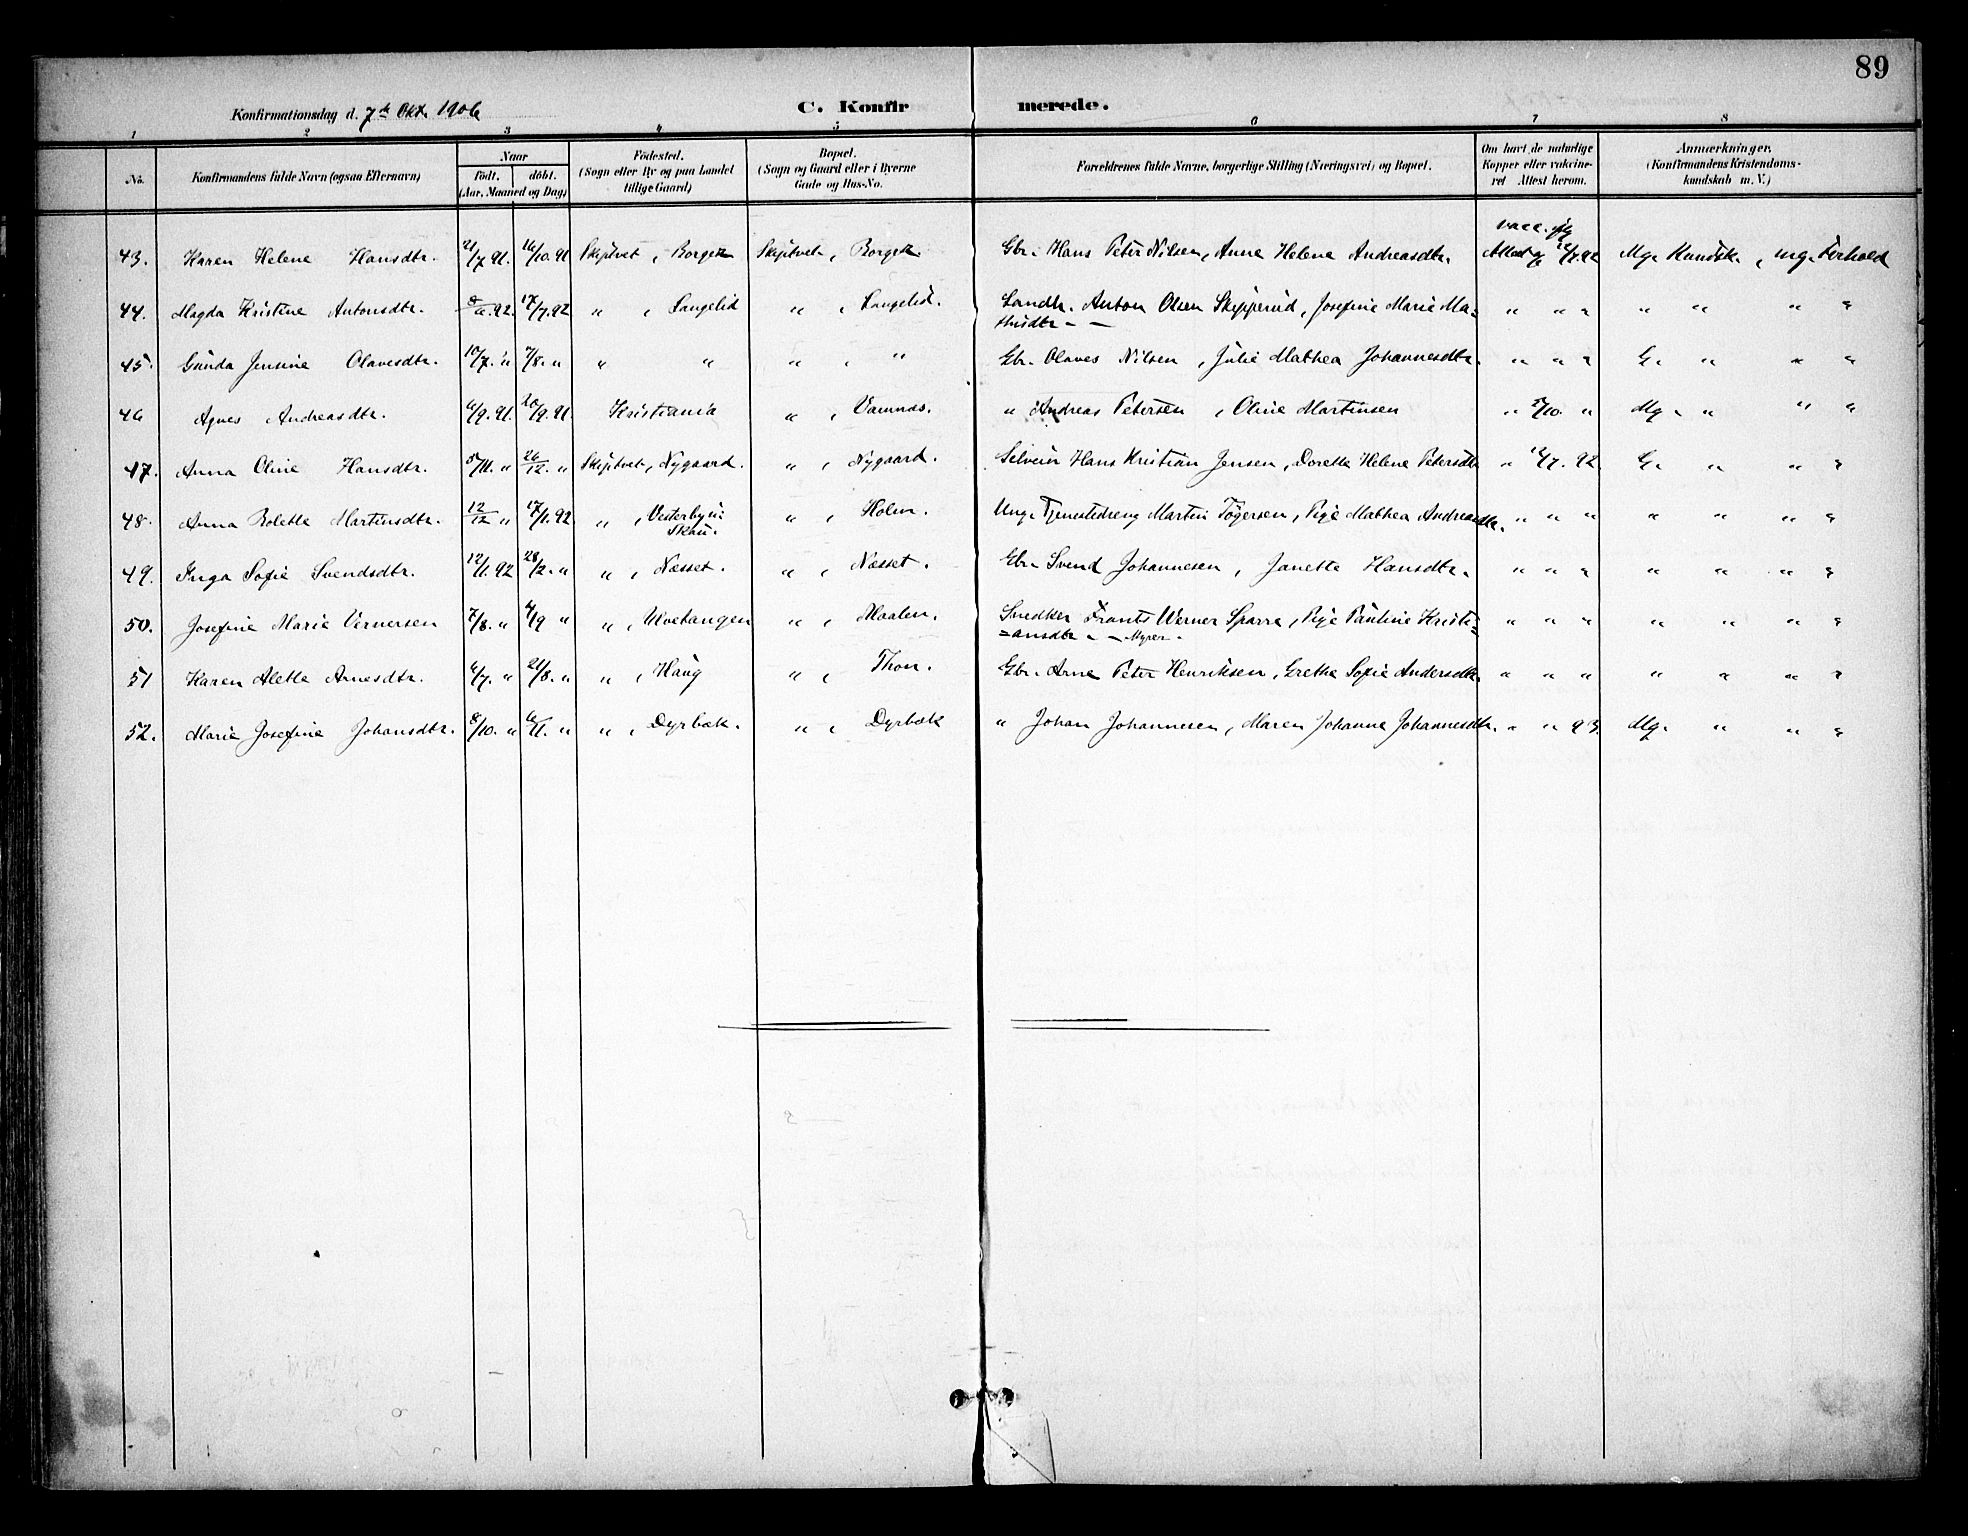 89
Konfirmationsdag d. 7de Okt. 1906 C. Konfir merede.
1 2 3 4 5 6 7 8
No. Konfirmandens fulde Navn (ogsaa Efternavn) Naar födt. döbt. (Aar, Maaned og Dag) Födested. (Sogn eller By og paa Landet tillige Gaard) Bopæl. (Sogn og Gaard eller i Byerne Gade og Hus-No. Forældrenes fulde Navne, borgerlige Stilling (Næringsvei) og Bopæl. Om havt de naturlige Kopper eller vakcineret Attest herom. Anmærkninger. (Konfirmandens Kristendomskundskab m. V.)
43. Karen Helene Hansdtr. 21/7 91. 16/10. 91 Skiptvet, Borgek Skiptvet, Borgek. Gbr. Hans Peter Nilsen, Anna Helene Andreasdtr. vacc. Attest 92 Mg. Kundsk., mg. Forhold
44. Magda Kristine Antonsdtr. 92. 17/7. 92 " , Langelid " , Langelid. Landh. Anton Olsen Skipperud, Josefine Marie Ma=
thisdtr. " " " " " " "
45. Gunda Jensine Olavesdtr. 10/7. " 7/8. " " " " , " Gbr. Olaves Nilsen, Julie Mathea Johannesdtr. " " " G. " " "
46 Agnes Andreasdtr. 6/9. 91. 20/9. 91. Kristiania " , Vamnæs. " Andreas Petersen, Oline Martinsen " /10. " Mg. " " "
47. Anna Oline Hansdtr. 5/11. " 26/12. " Skiptvet, Nygaard. " , Nygaard. Selveier Hans Kristian Jensen, Dorette Helene Petersdtr " /7. 92 G. " " "
48. Anna Bolette Martinsdtr. 12/12 " 17/1. 92 " , Vesterby u:
Skau. " , Holen. Ung. Tjenestedreng Martin Tögersen, Pige Mathea Andreasdtr. " " " " " " "
49. Inga Sofie Svendsdtr. 12/1. 92 28/2. " " , Næsset. " , Næsset. Gbr. Svend Johannesen, Janette Hansdtr. " " " " " " "
50. Josefine Marie Vernersen 7/8. " 4/9 " " , Uvetangen " , Maalen. Snedker Frants Werner Sparre, Pige Pauline Kristi=
=ansdtr. - - Myrer. " " " " " " "
51 Karen Alette Arnesdtr. 6/7. " 21/8. " " , Haug " , Thon. Gbr. Arne Peter Henriksen, Grethe Sofie Andersdtr. " " " " " " "
52. Marie Josefine Johansdtr. 8/10. " 6/11. " " , Dyrbæk. " , Dyrbæk " Johan Johannesen, Maren Johanne Johannesdtr. " " 93. Mg. " " "